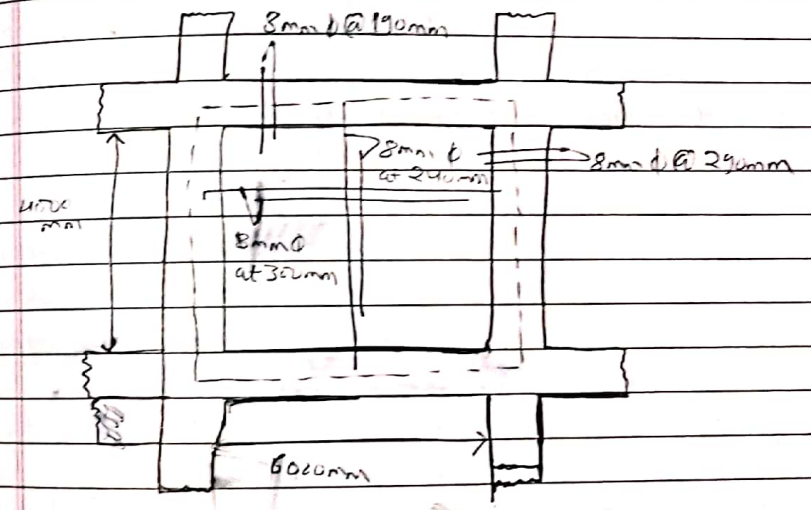 8mm ϕ @ 190mm
8mm ϕ
at 240mm
8mm ϕ @ 290mm
mm
8mm ϕ
at 300mm
6000mm